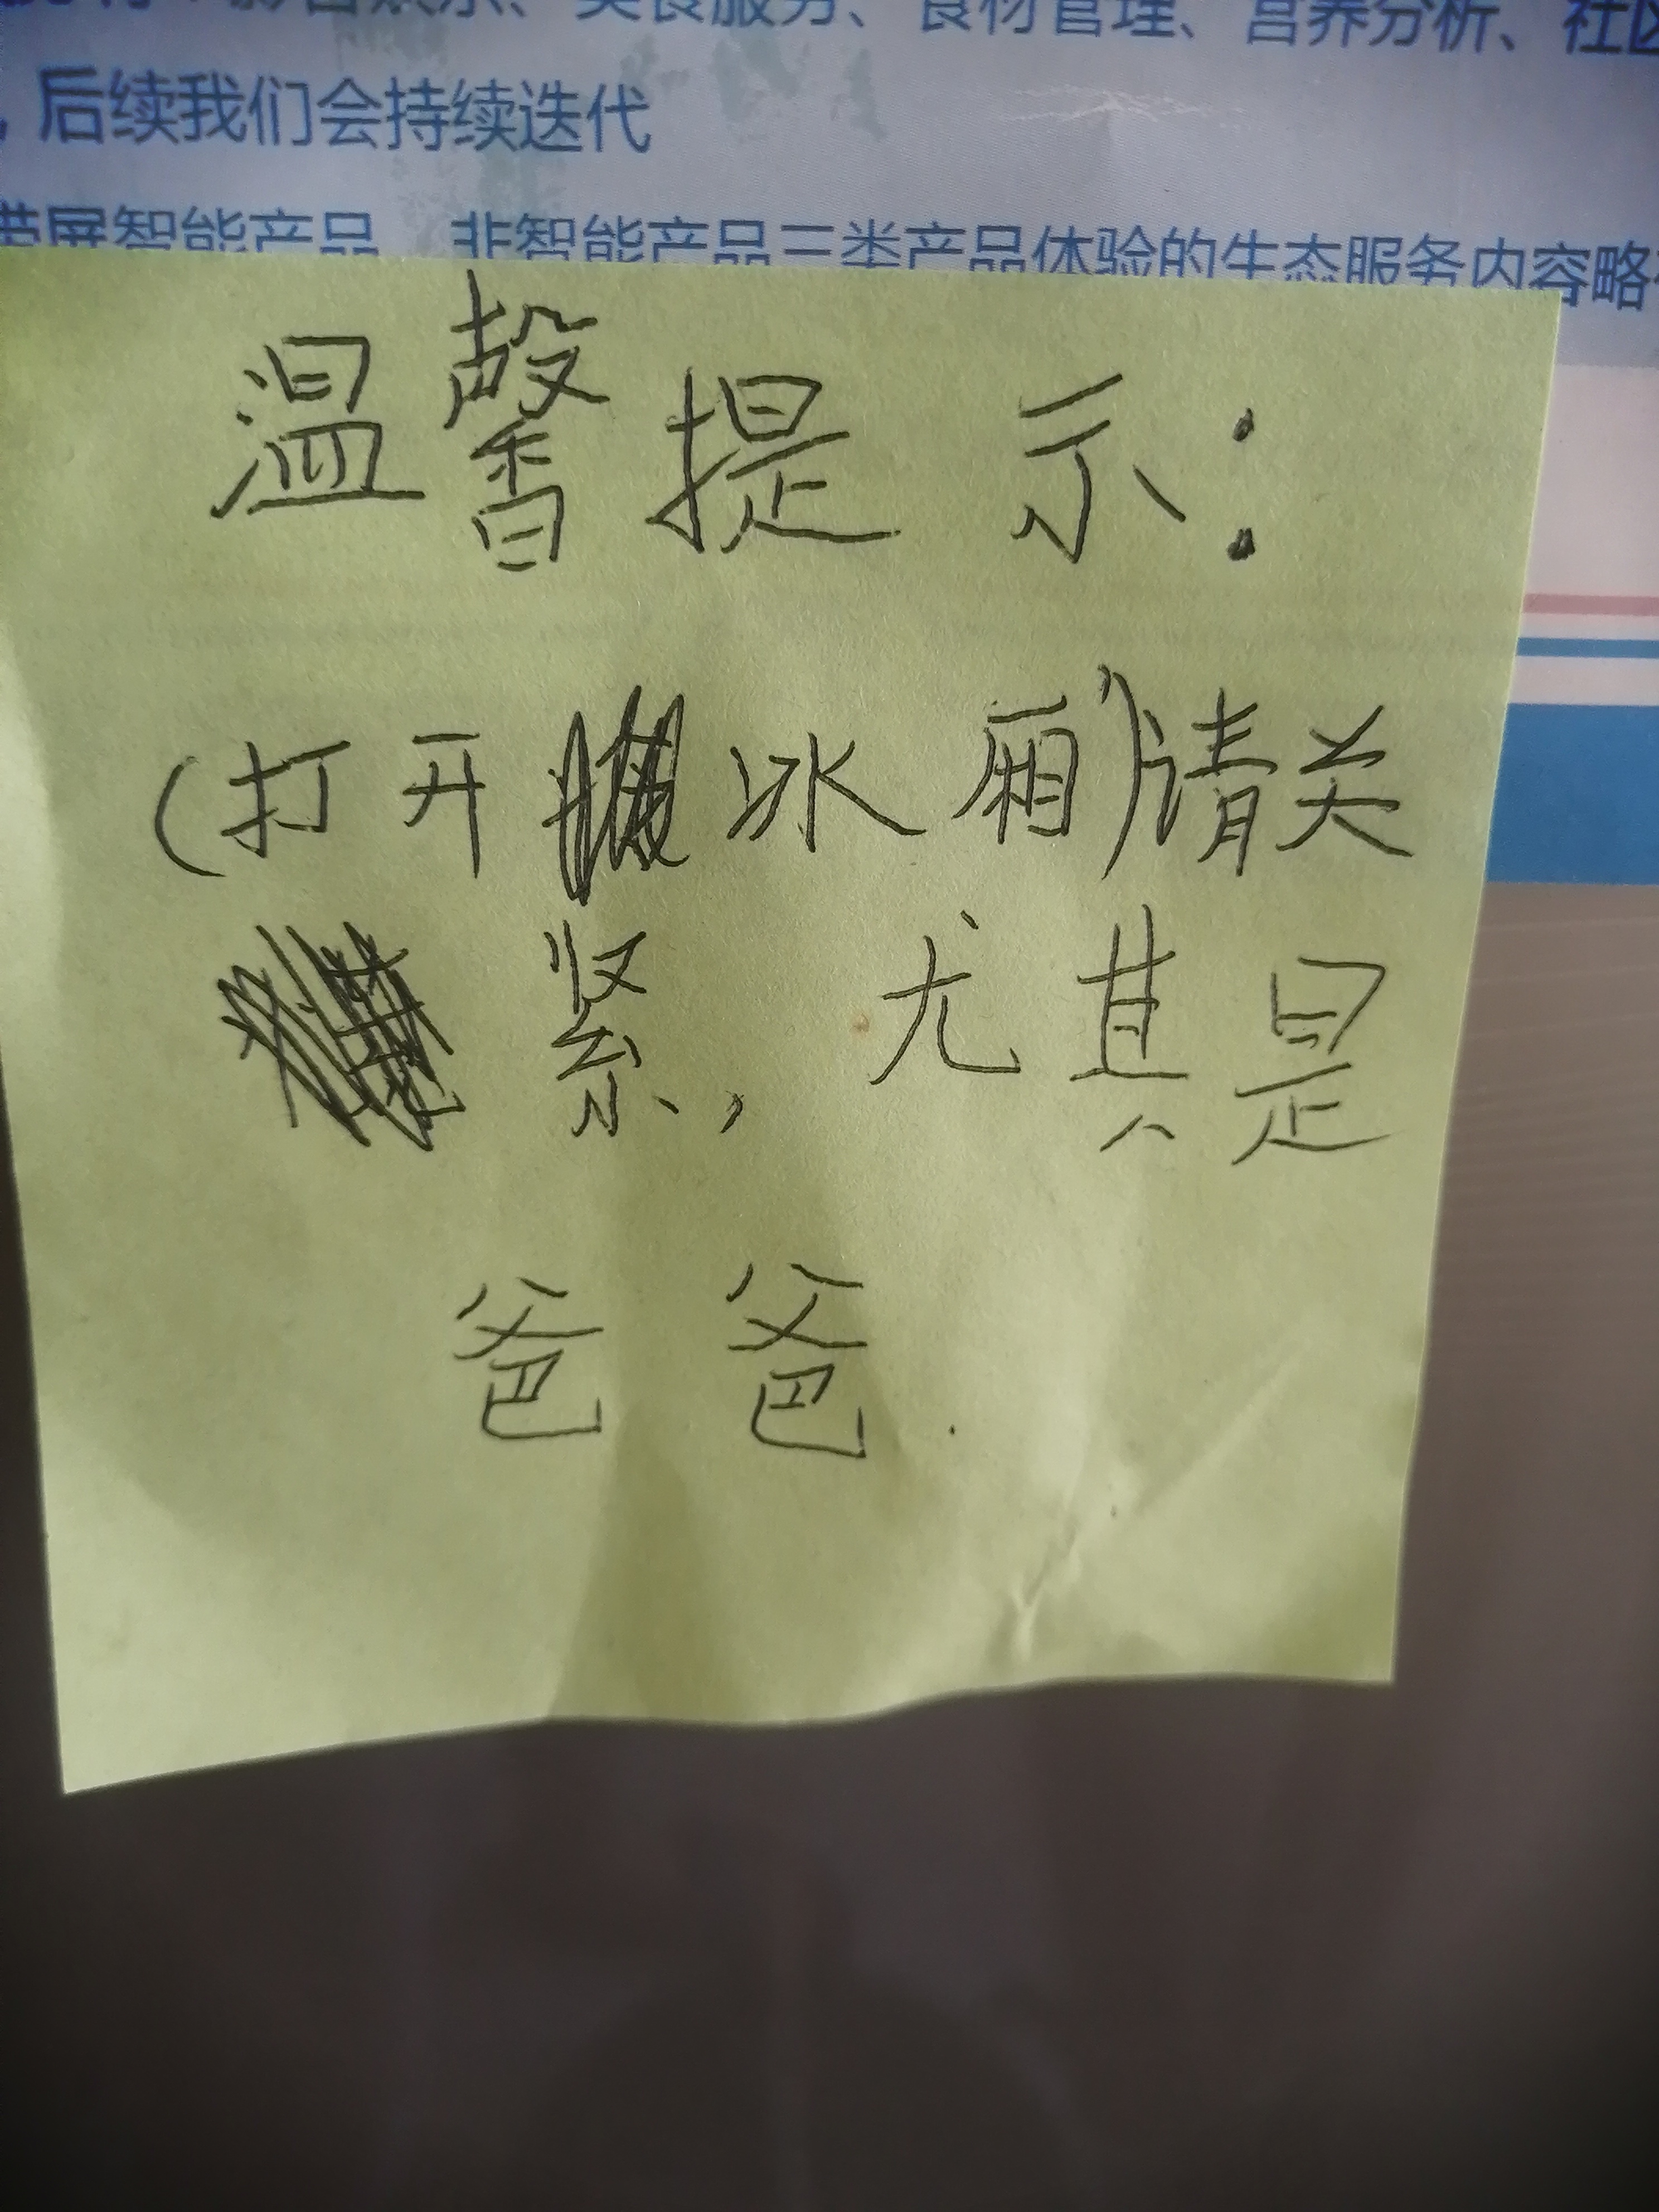 美食服务、食材管理、营养分析、社区
，后续我们会持续迭代
带屏智能产品、非智能产品三类产品体验的生态服务内容略
温馨提示：
(打开冰厢)请关
紧，尤其是
爸爸.